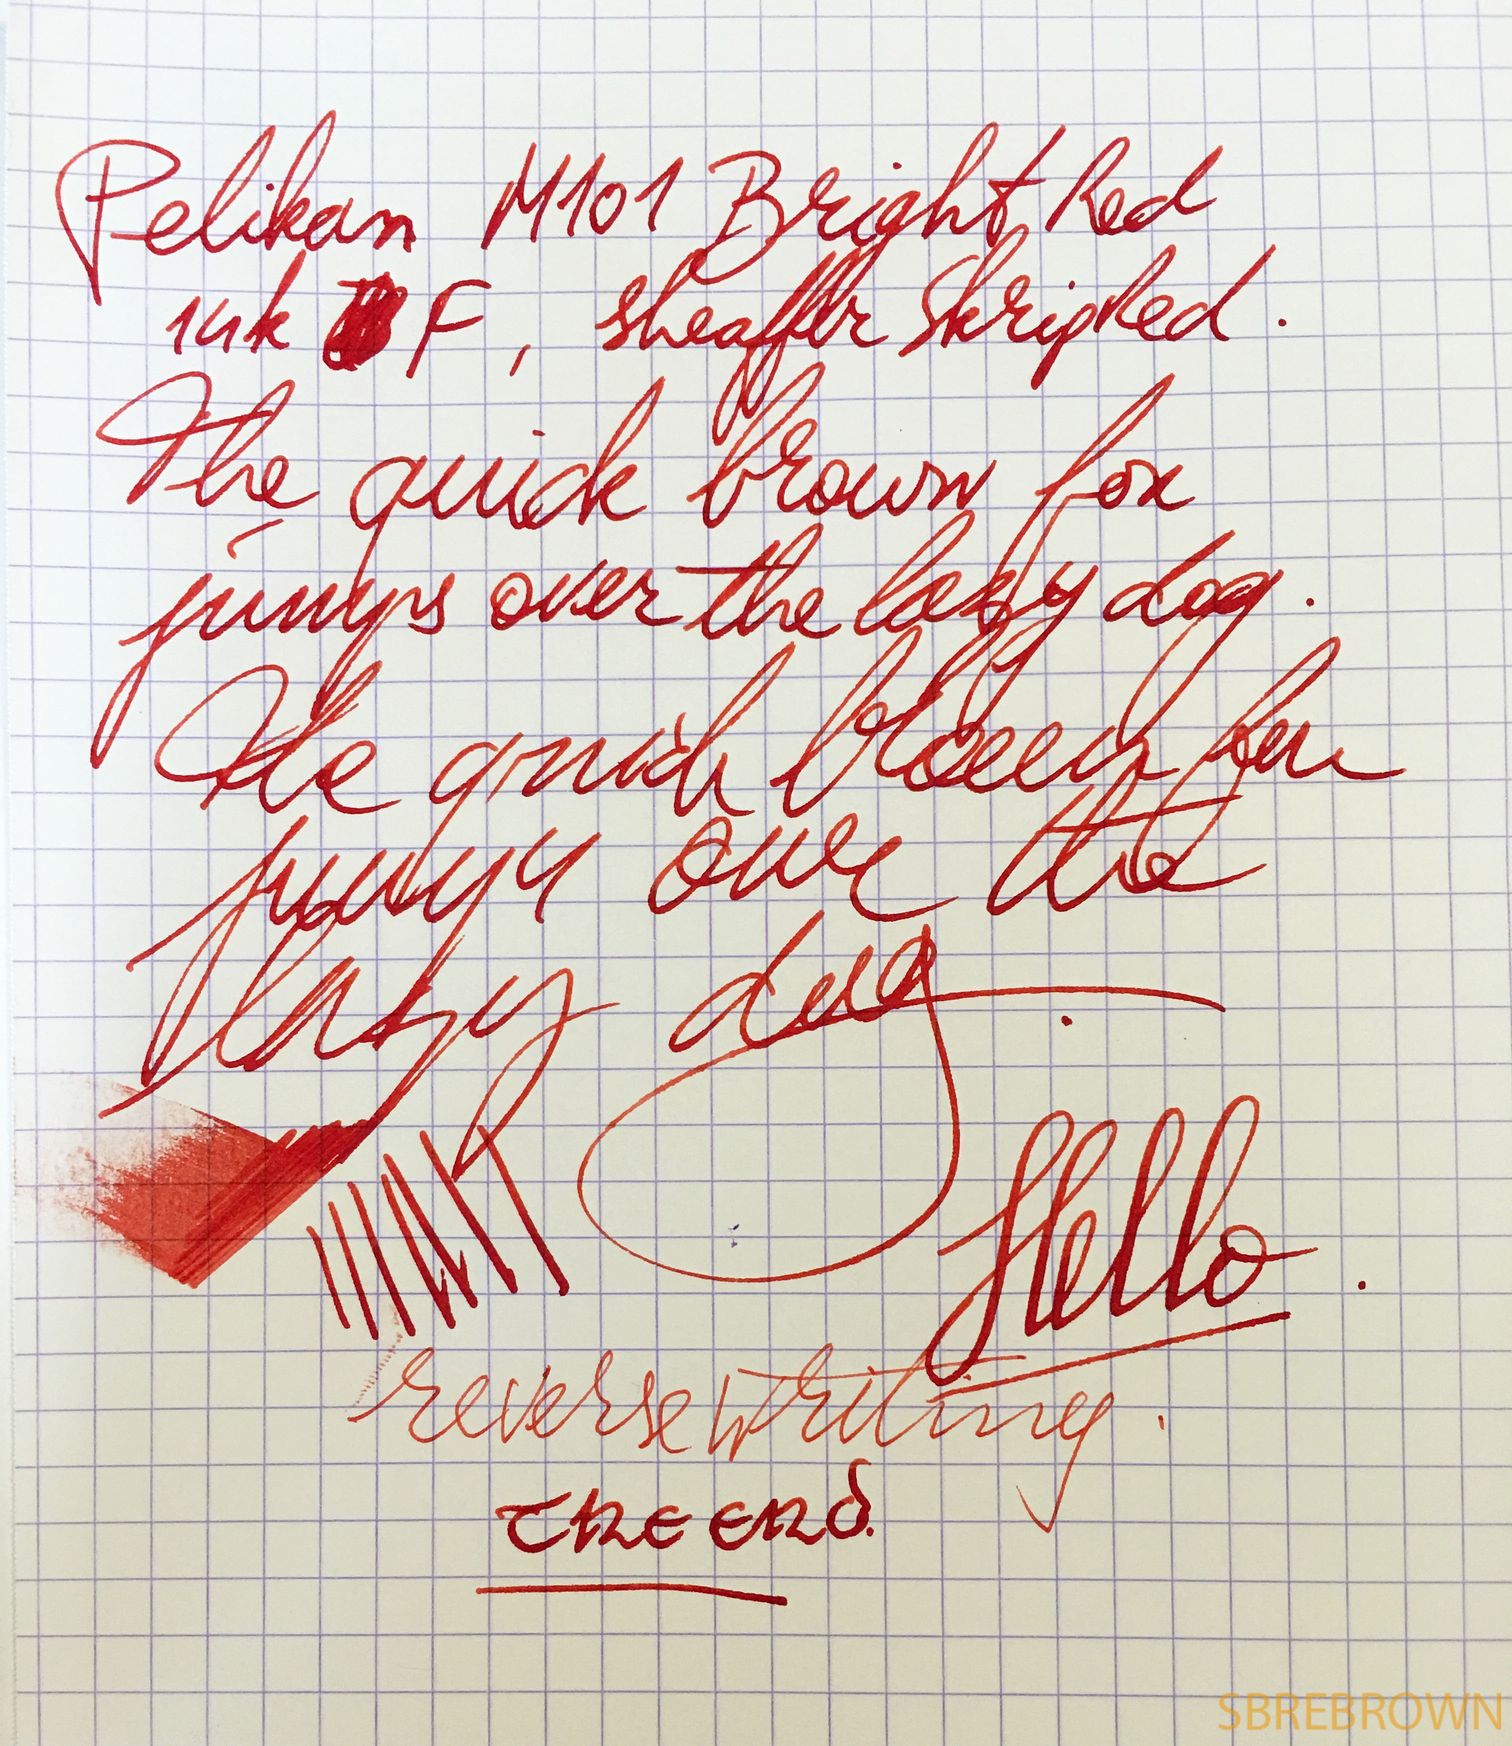 Pelikan M101 Bright Red
14k F, Sheaffer Skrip Red.
The quick brown fox
jumps over the lazy dog.
The quick brown fox
jumps over the
lazy dog.
Hello.
reverse writing.
THE END.
SBREBROWN